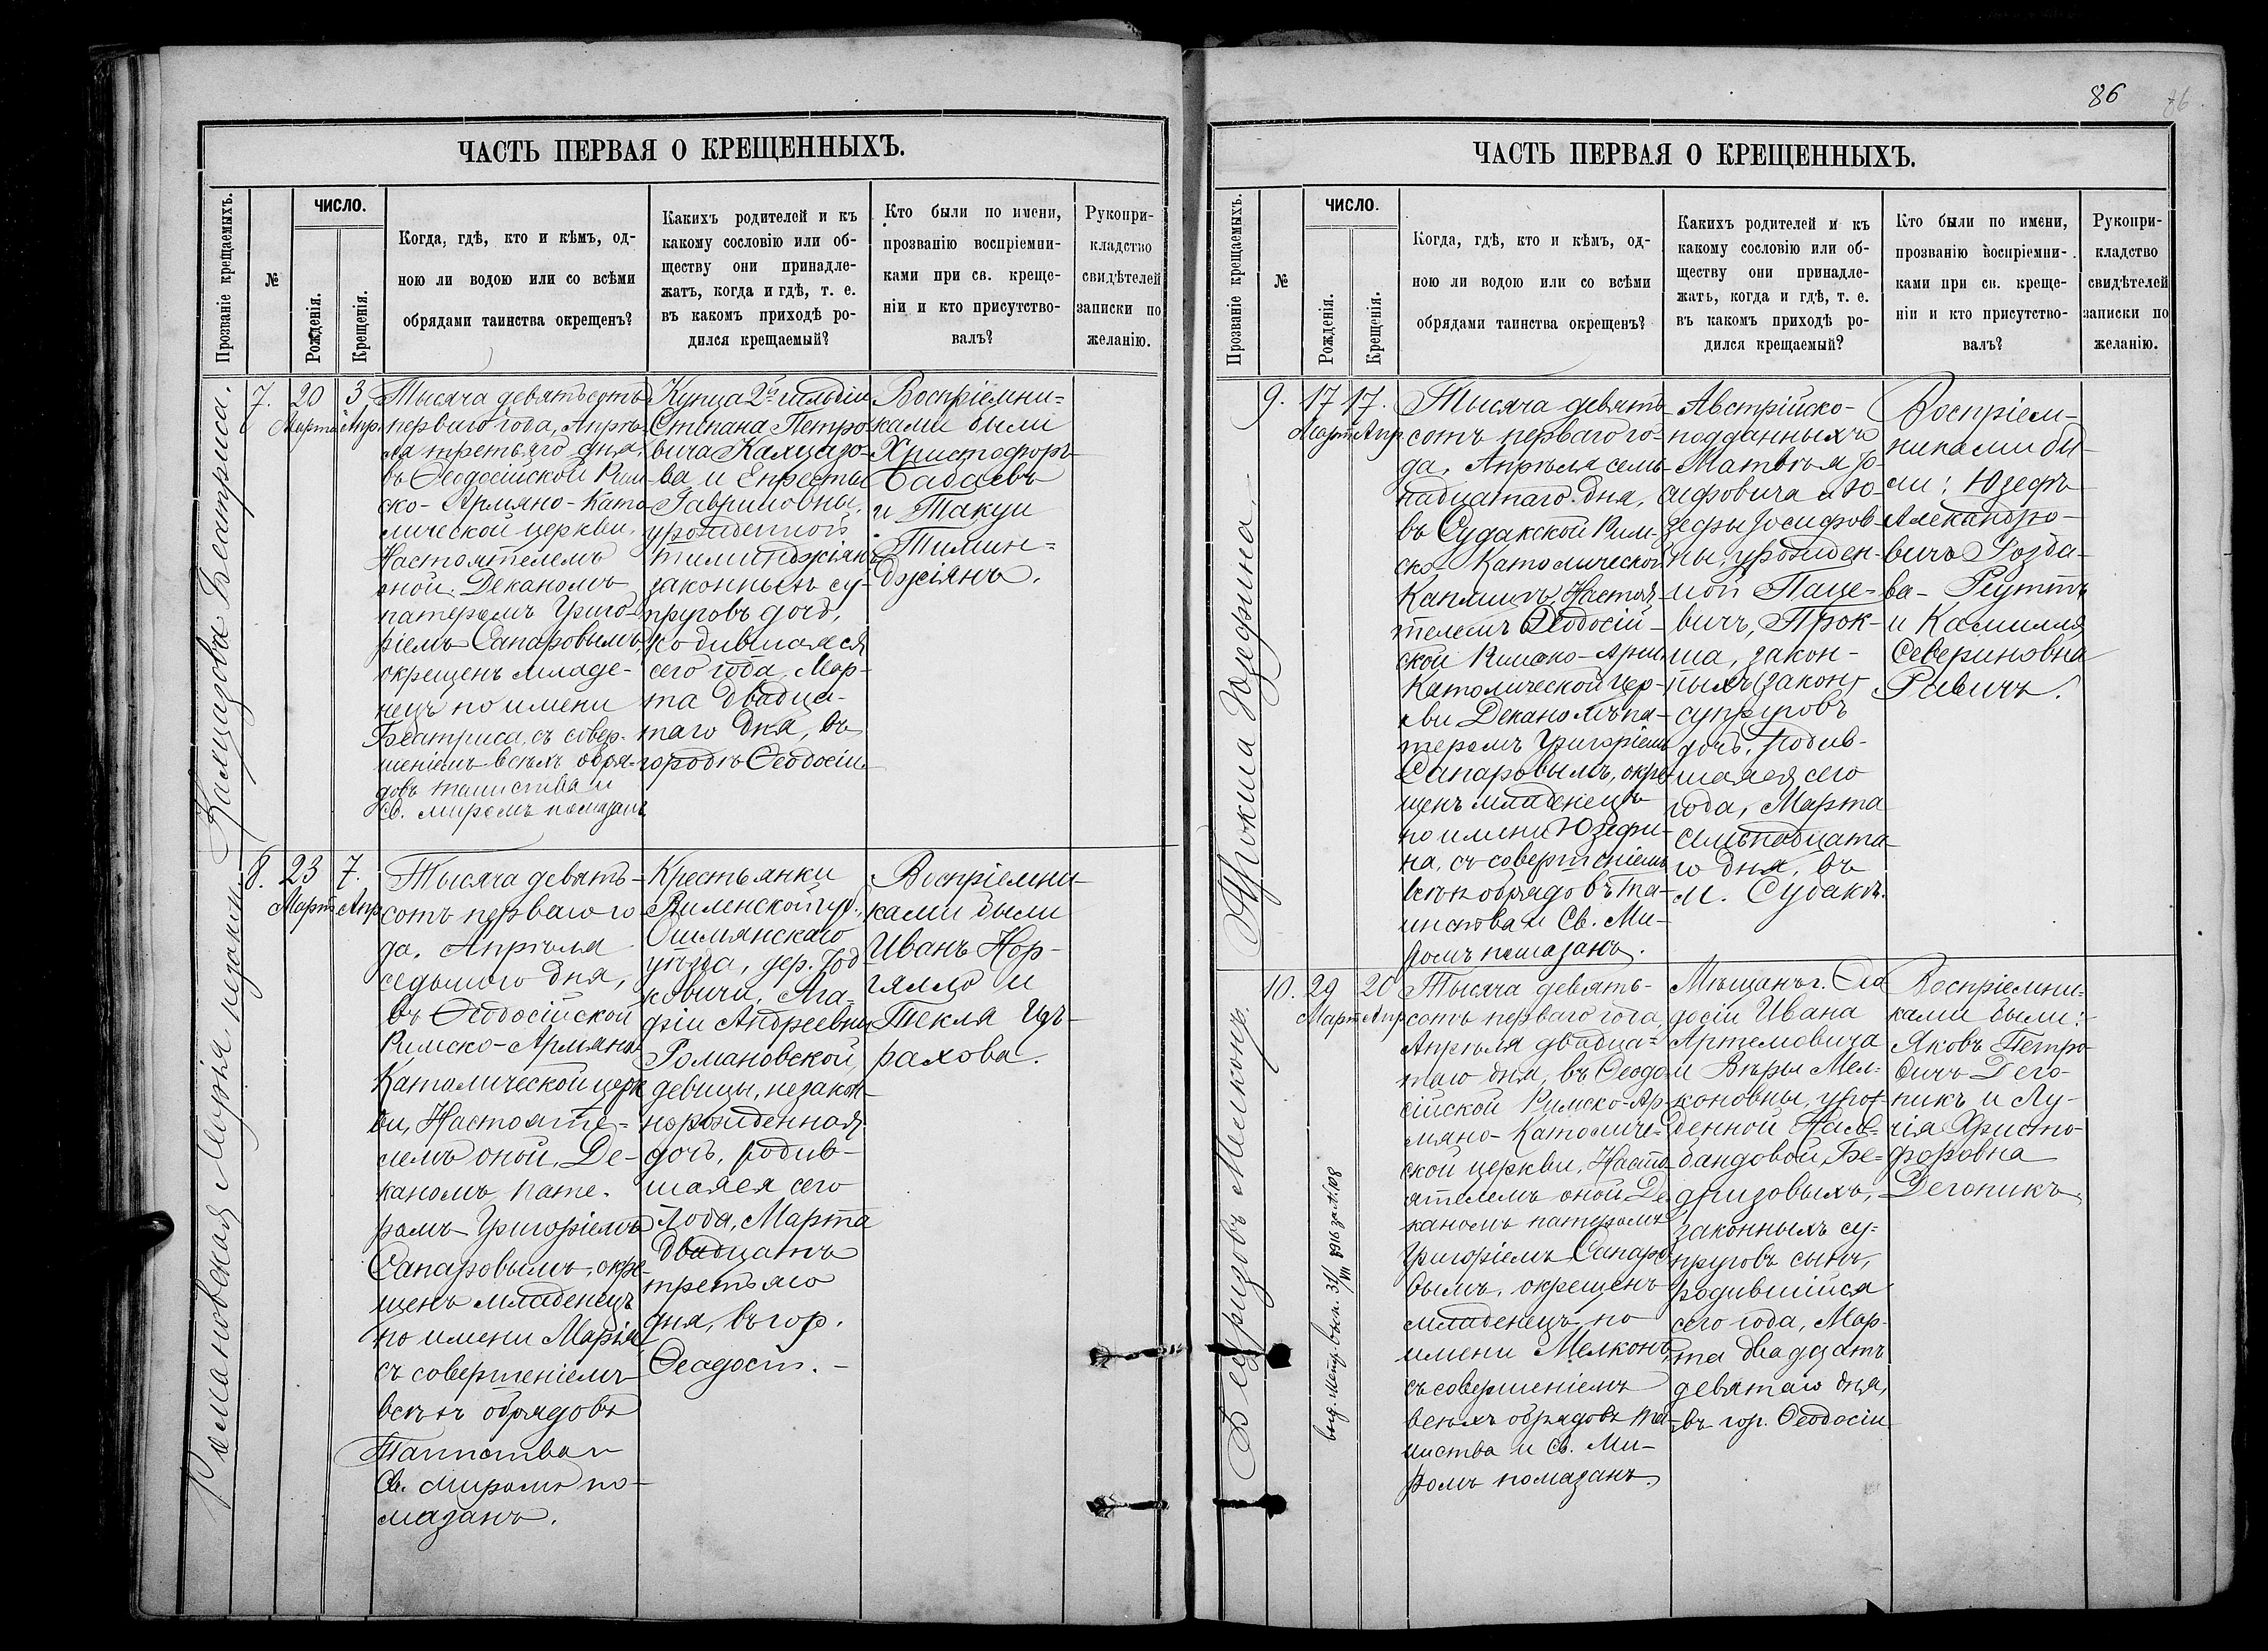 ЧАСТЬ ПЕРВАЯ О КРЕЩЕННЫХЪ.
Прозваніе крещаемыхъ.
№
ЧИСЛО.
Рожденія.
Крещенія.
Когда, гдѣ, кто и кѣмъ, од-
ною ли водою или со всѣми
обрядами таинства окрещенъ?
Какихъ родителей и къ
какому сословію или об-
ществу они принадле-
жатъ, когда и гдѣ, т. е.
въ какомъ приходѣ ро-
дился крещаемый?
Кто были по имени,
прозванію воспріемни-
ками при св. креще-
ніи и кто присутство-
валъ?
Рукопри-
кладство
свидѣтелей
записки по
желанію.
7.
20
Марта
3
Апр.
Тысяча девятьсотъ
перваго года, Апрѣ-
ля третьяго дня,
въ Ѳеодосійской Рим-
ско-Армяно-Като-
лической церкви,
Настоятелемъ
оной, Деканомъ
патеромъ Григо-
ріемъ Сапаровымъ,
окрещенъ младе-
нецъ по имени
Беатриса, съ совер-
шеніемъ всѣхъ обря-
довъ таинства и
Св. миромъ помазанъ
Купца 2й гильдіи
Степана Петро-
вича Калцазо-
ва и
Гавриловны,
урожденной
законныхъ су-
пруговъ дочь,
родившаяся
сего года, Мар-
та двадца-
таго дня, въ
городѣ Ѳеодосіи
Воспріемни-
ками были
Христофоръ
Бабаевъ
и Такуи
Тимин-
джіянъ.
8.
23
Март
7.
Апр
Тысяча девять-
сотъ перваго го-
да, Апрѣля
седьмого дня,
въ Ѳеодосійской
Римско-Армяно
Католической церк
ви, Настояте-
лемъ оной, Де-
каномъ, пате-
ромъ Григоріемъ
Сапаровымъ, окре-
щенъ младенецъ
по имени Марія
съ совершеніемъ
всѣхъ обрядовъ
Таинства и
Св. миромъ по-
мазанъ.
Крестьянки
Виленской губ.,
Ошмянскаго
уѣзда, дер.
ковичи, Ага-
фіи Андреевны
Романовской,
девицы, незакон-
норожденная
дочь, родив-
шаяся сего
года, Марта
двадцать
третьяго
дня, въ гор.
Ѳеодосіи. -
Воспріемни-
ками были
Иванъ Нор-
гялло и
Текля
рахова.
Калцазова Беатриса.
Романовская Марія незакон.
86
76.
ЧАСТЬ ПЕРВАЯ О КРЕЩЕННЫХЪ.
Прозваніе крещаемыхъ.
№
ЧИСЛО.
Рожденія.
Крещенія.
Когда, гдѣ, кто и кѣмъ, од-
ною ли водою или со всѣми
обрядами таинства окрещенъ?
Какихъ родителей и къ
какому сословію или об-
ществу они принадле-
жатъ, когда и гдѣ, т. е.
въ какомъ приходѣ ро-
дился крещаемый?
Кто были по имени,
прозванію воспріемни-
ками при св. креще-
ніи и кто присутство-
валъ?
Рукопри-
кладство
свидѣтелей
записки по
желанію.
9.
17
Март
17.
Апр
Тысяча девять-
сотъ перваго го-
да, Апрѣля сем-
надцатаго дня,
въ Судакской Рим-
ско-Католической
Каплицѣ, Настоя-
телемъ Ѳеодосій-
ской Римско-Арм.
Католической Цер-
кви Деканомъ па-
теромъ Григоріемъ
Сапаровымъ, окре-
щенъ младенецъ
по имени Юзефи-
на, съ совершеніемъ
всѣхъ обрядовъ та-
инства и Св. Ми-
ромъ помазанъ.
Австрійско-
подданныхъ
Матвѣя Іо-
сифовича и Ю-
зефы Іосифов-
ны, урожден-
ной Паце-
вичъ, Прок-
ша, закон-
ныхъ (закон)
супруговъ
дочь, родив-
шаяся сего
года, Марта
семьнадцата-
го дня, въ
м. Судакѣ.
Воспріем-
никами бы-
ли: Юзефъ
Александро-
вичъ Розда-
ва- Реуттъ
и Камилля
Севериновна
Равичъ.
10.
29
Март
20
Апр
Тысяча девять-
сотъ перваго года,
Апрѣля двадца-
таго дня, въ Ѳеодо-
сійской Римско-Ар-
мяно-Католиче-
ской церкви, Насто-
ятелемъ оной Де-
каномъ патеромъ
Григоріемъ Сапаро-
вымъ, окрещенъ
младенецъ по
имени Мелконъ,
съ совершеніемъ
всѣхъ обрядовъ та-
инства и Св. Ми-
ромъ помазанъ.
Мѣщанъ г. Ѳео
досіи Ивана
Артемовича
и Вѣры Мел-
коновны, урож
денной Нал-
бандовой, Бе-
дризовыхъ,
законныхъ су-
пруговъ сынъ,
родившійся
сего года, Мар-
та двадцать
девятаго дня,
въ гор. Ѳеодосіи
Воспріемни-
ками были:
Яковъ Петро-
вичъ Дего-
никъ и Лу-
чія Христо-
форовна
Дегоникъ.
Прокша Юзефина.
Бедризовъ Мелконъ.
выд. метр. вып. 31/VII 1916 за № 108